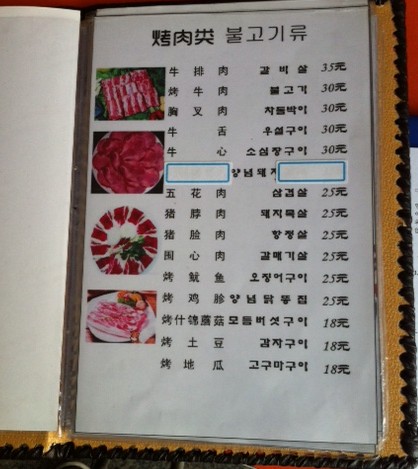 烤肉类 불고기류
牛排肉 갈비살 35元
烤牛肉 불고기 30元
胸叉肉 차돌박이 30元
牛舌 우설구이 30元
牛心 소심장구이 30元
양념돼지
五花肉 삼겹살 25元
猪脖肉 돼지목살 25元
猪脸肉 항정살 25元
围心肉 갈매기살 25元
烤鱿鱼 오징어구이 25元
烤鸡胗 양념닭똥집 25元
烤什锦蘑菇 모듬버섯구이 18元
烤土豆 감자구이 18元
烤地瓜 고구마구이 18元